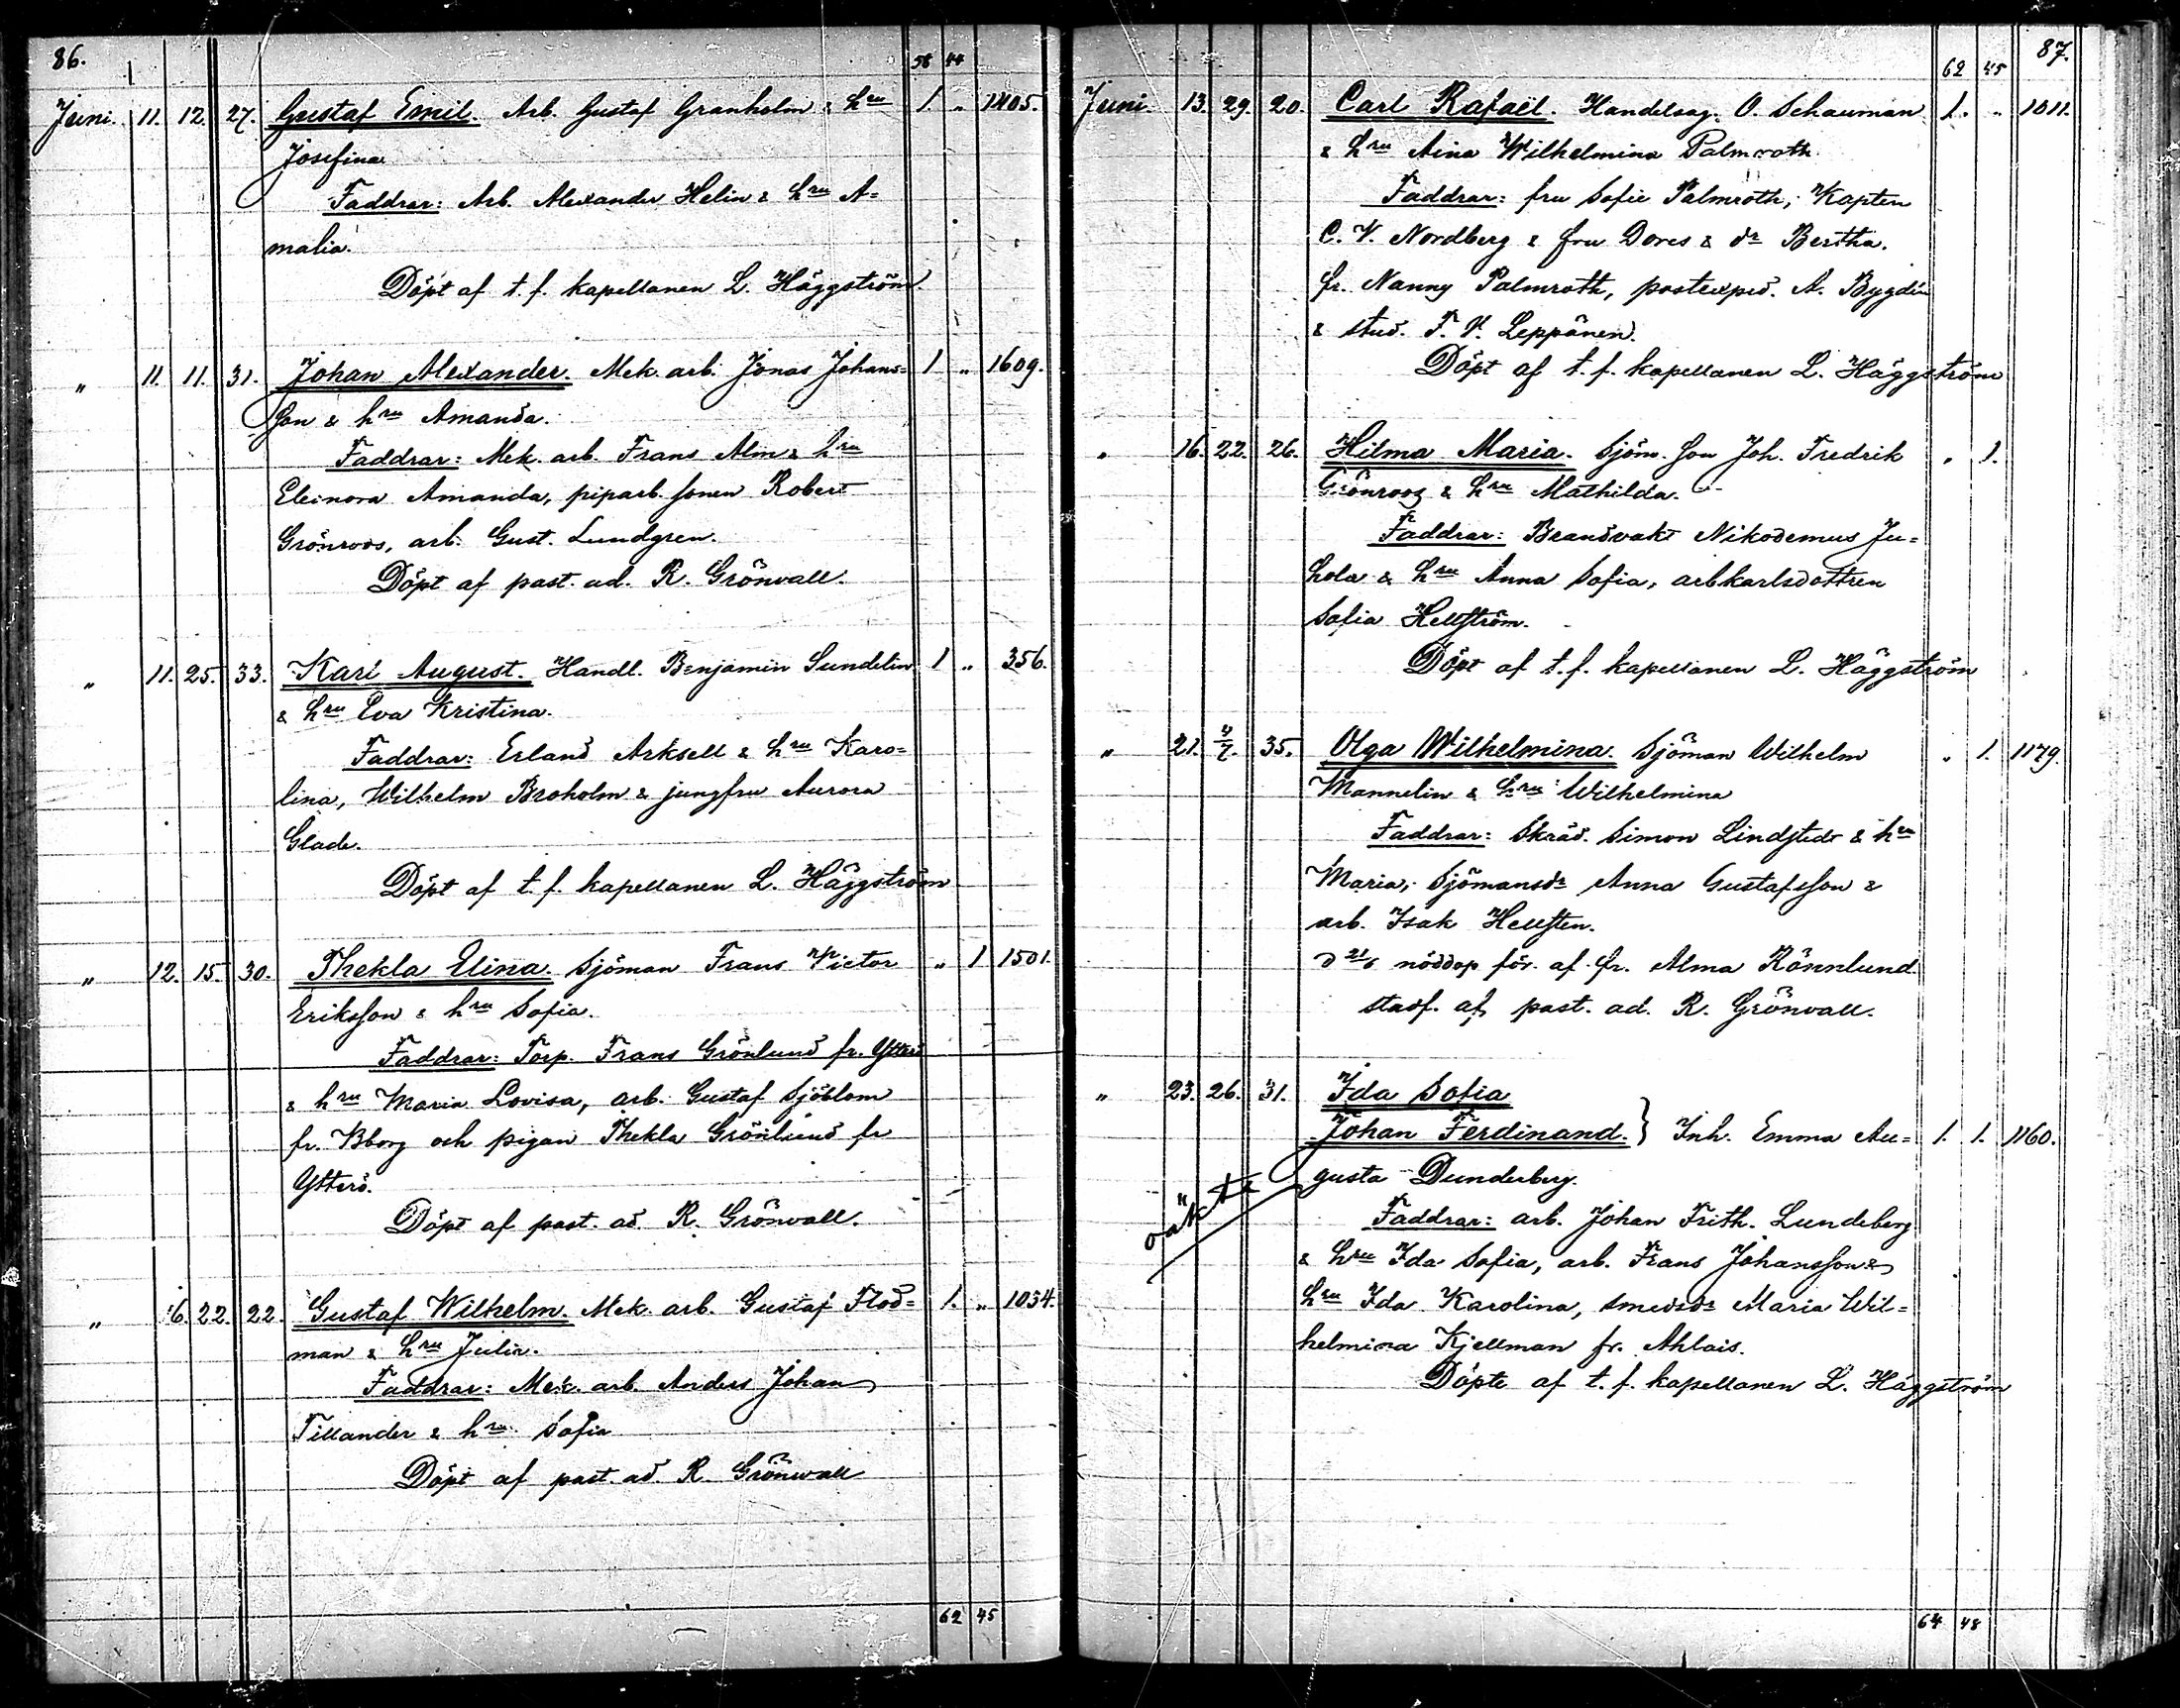 86.
58 44
Juni. 11. 12. 27. Gustaf Emil. Arb. Gustaf Granholm & hru 1 „ 1405.
Josefina
Faddrar: Arb. Alexander Helin & hru A=
malia.
Döpt af t. f. kapellanen L. Häggström
„ 11. 11. 31. Johan Alexander. Mek. arb. Jonas Johans= 1 „ 1609.
son & hru Amanda.
Faddrar: Mek. arb. Frans Alm & hru
Eleonora Amanda, piparb. sonen Robert
Grönroos, arb. Gust. Lundgren.
Döpt af past. ad. R. Grönvall.
„ 11. 25. 33. Karl August. Handl. Benjamin Sundelin 1 „ 356.
& hru Eva Kristina.
Faddrar: Erland Arksell & hru Karo=
lina, Wilhelm Broholm & jungfru Aurora
Glade.
Döpt af t. f. kapellanen L. Häggström
„ 12. 15. 30. Thekla Elina. Sjöman Frans Victor „ 1 1501.
Eriksson & hru Sofia.
Faddrar: Torp. Frans Grönlund fr. Ytterö
& hru Maria Lovisa, arb. Gustaf Sjöblom
fr. Bborg och pigan Thekla Grönlund fr
Ytterö.
Döpt af past. ad. R. Grönvall.
„ 16. 22. 22. Gustaf Wilhelm. Mek. arb. Gustaf Flod= 1. „ 1034.
man & hru Julia.
Faddrar: Mek. arb. Anders Johan
Tillander & hru Sofia
Döpt af past. ad. R. Grönwall
62 45
87.
62 45
Juni. 13. 29. 20. Carl Rafaël. Handelsag. O. Schauman 1. „ 1011.
& hru Aina Wilhelmina Palmroth.
Faddrar: fru Sofie Palmroth, Kapten
C. V. Nordberg & fru Dores & dr Bertha.
fr. Nanny Palmroth, postexped. A. Bygdén
& stud. F. V. Leppänen.
Döpt af t. f. kapellanen L. Häggström
„ 16. 22. 26. Hilma Maria. Sjöm. son Joh. Fredrik „ 1.
Grönroos & hru Mathilda.
Faddrar: Brandvakt Nikodemus Ju=
hola & hru Anna Sofia, arbkarlsdottren
Sofia Hellström.
Döpt af t. f. kapellanen L. Häggström
„ 21. 4/7. 35. Olga Wilhelmina. Sjöman Wilhelm „ 1. 1179.
Mannelin & hru Wilhelmina
Faddrar: Skräd. Simon Lindstedt & hru
Maria, Sjömansdr Anna Gustafsson &
arb. Isak Hellsten.
d 21/6 nöddop för. af fr. Alma Rönnlund
stadf. af past. ad. R. Grönvall.
„ 23. 26. 31. Ida Sofia
Johan Ferdinand. } Inh. Emma Au= 1. 1. 1160.
gusta Dunderberg.
oäkta
Faddrar: arb. Johan Frith. Lundeberg
& hru Ida Sofia, arb. Frans Johansson &
hru Ida Karolina, smedsdr Maria Wil=
helmina Kjellman fr. Ahlais.
Döpte af t. f. kapellanen L. Häggström
64 48